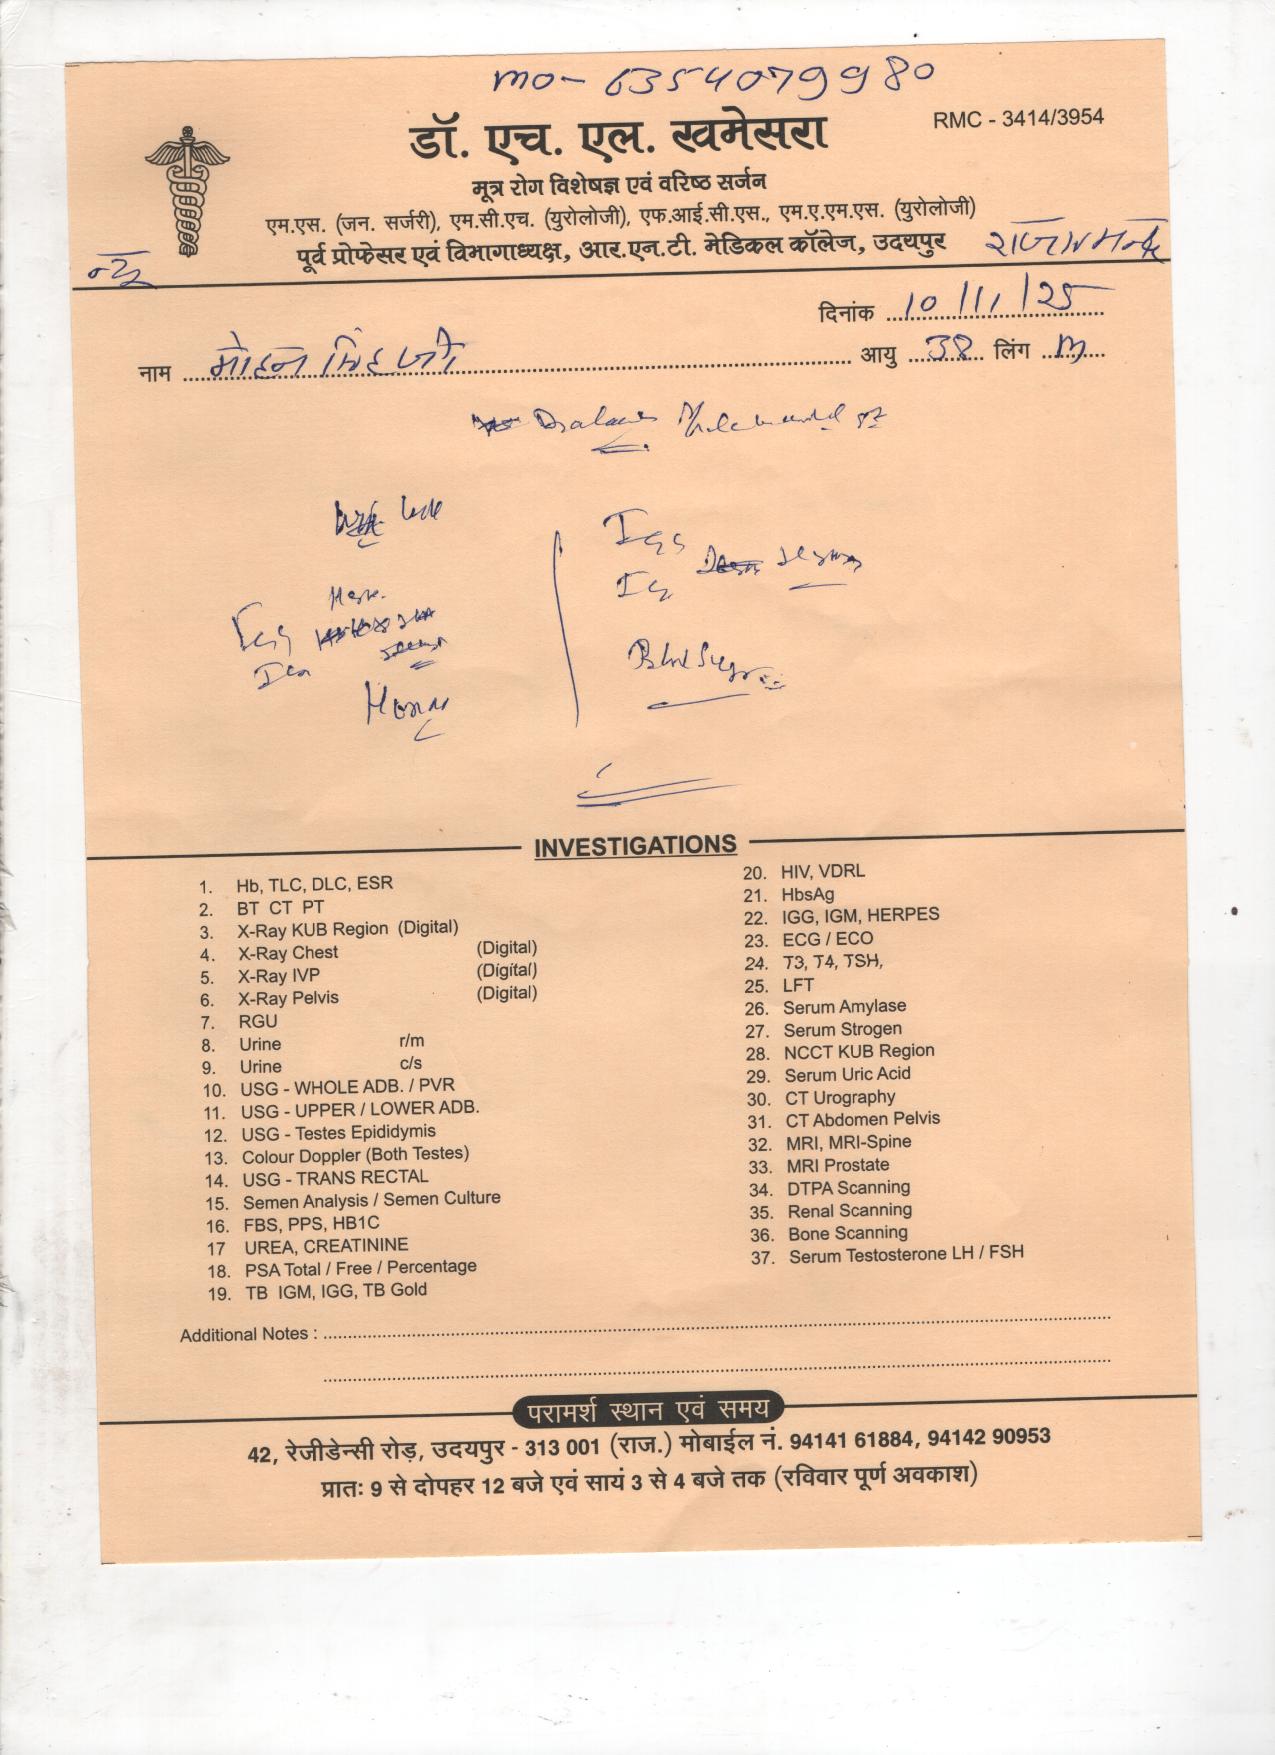 mo- 6354079980
RMC - 3414/3954
डॉ. एच. एल. खमेसरा
मूत्र रोग विशेषज्ञ एवं वरिष्ठ सर्जन
एम.एस. (जन. सर्जरी), एम.सी.एच. (युरोलोजी), एफ.आई.सी.एस., एम.ए.एम.एस. (युरोलोजी)
पूर्व प्रोफेसर एवं विभागाध्यक्ष, आर.एन.टी. मेडिकल कॉलेज, उदयपुर
दिनांक 10/11/25
नाम मोहन सिंह जी आयु 38 लिंग M
Igg
Blood Sugar
INVESTIGATIONS
1. Hb, TLC, DLC, ESR
2. BT CT PT
3. X-Ray KUB Region (Digital)
4. X-Ray Chest (Digital)
5. X-Ray IVP (Digital)
6. X-Ray Pelvis (Digital)
7. RGU
8. Urine r/m
9. Urine c/s
10. USG - WHOLE ADB. / PVR
11. USG - UPPER / LOWER ADB.
12. USG - Testes Epididymis
13. Colour Doppler (Both Testes)
14. USG - TRANS RECTAL
15. Semen Analysis / Semen Culture
16. FBS, PPS, HB1C
17 UREA, CREATININE
18. PSA Total / Free / Percentage
19. TB IGM, IGG, TB Gold
20. HIV, VDRL
21. HbsAg
22. IGG, IGM, HERPES
23. ECG / ECO
24. T3, T4, TSH,
25. LFT
26. Serum Amylase
27. Serum Strogen
28. NCCT KUB Region
29. Serum Uric Acid
30. CT Urography
31. CT Abdomen Pelvis
32. MRI, MRI-Spine
33. MRI Prostate
34. DTPA Scanning
35. Renal Scanning
36. Bone Scanning
37. Serum Testosterone LH / FSH
Additional Notes :
परामर्श स्थान एवं समय
42, रेजीडेन्सी रोड़, उदयपुर - 313 001 (राज.) मोबाईल नं. 94141 61884, 94142 90953
प्रातः 9 से दोपहर 12 बजे एवं सायं 3 से 4 बजे तक (रविवार पूर्ण अवकाश)